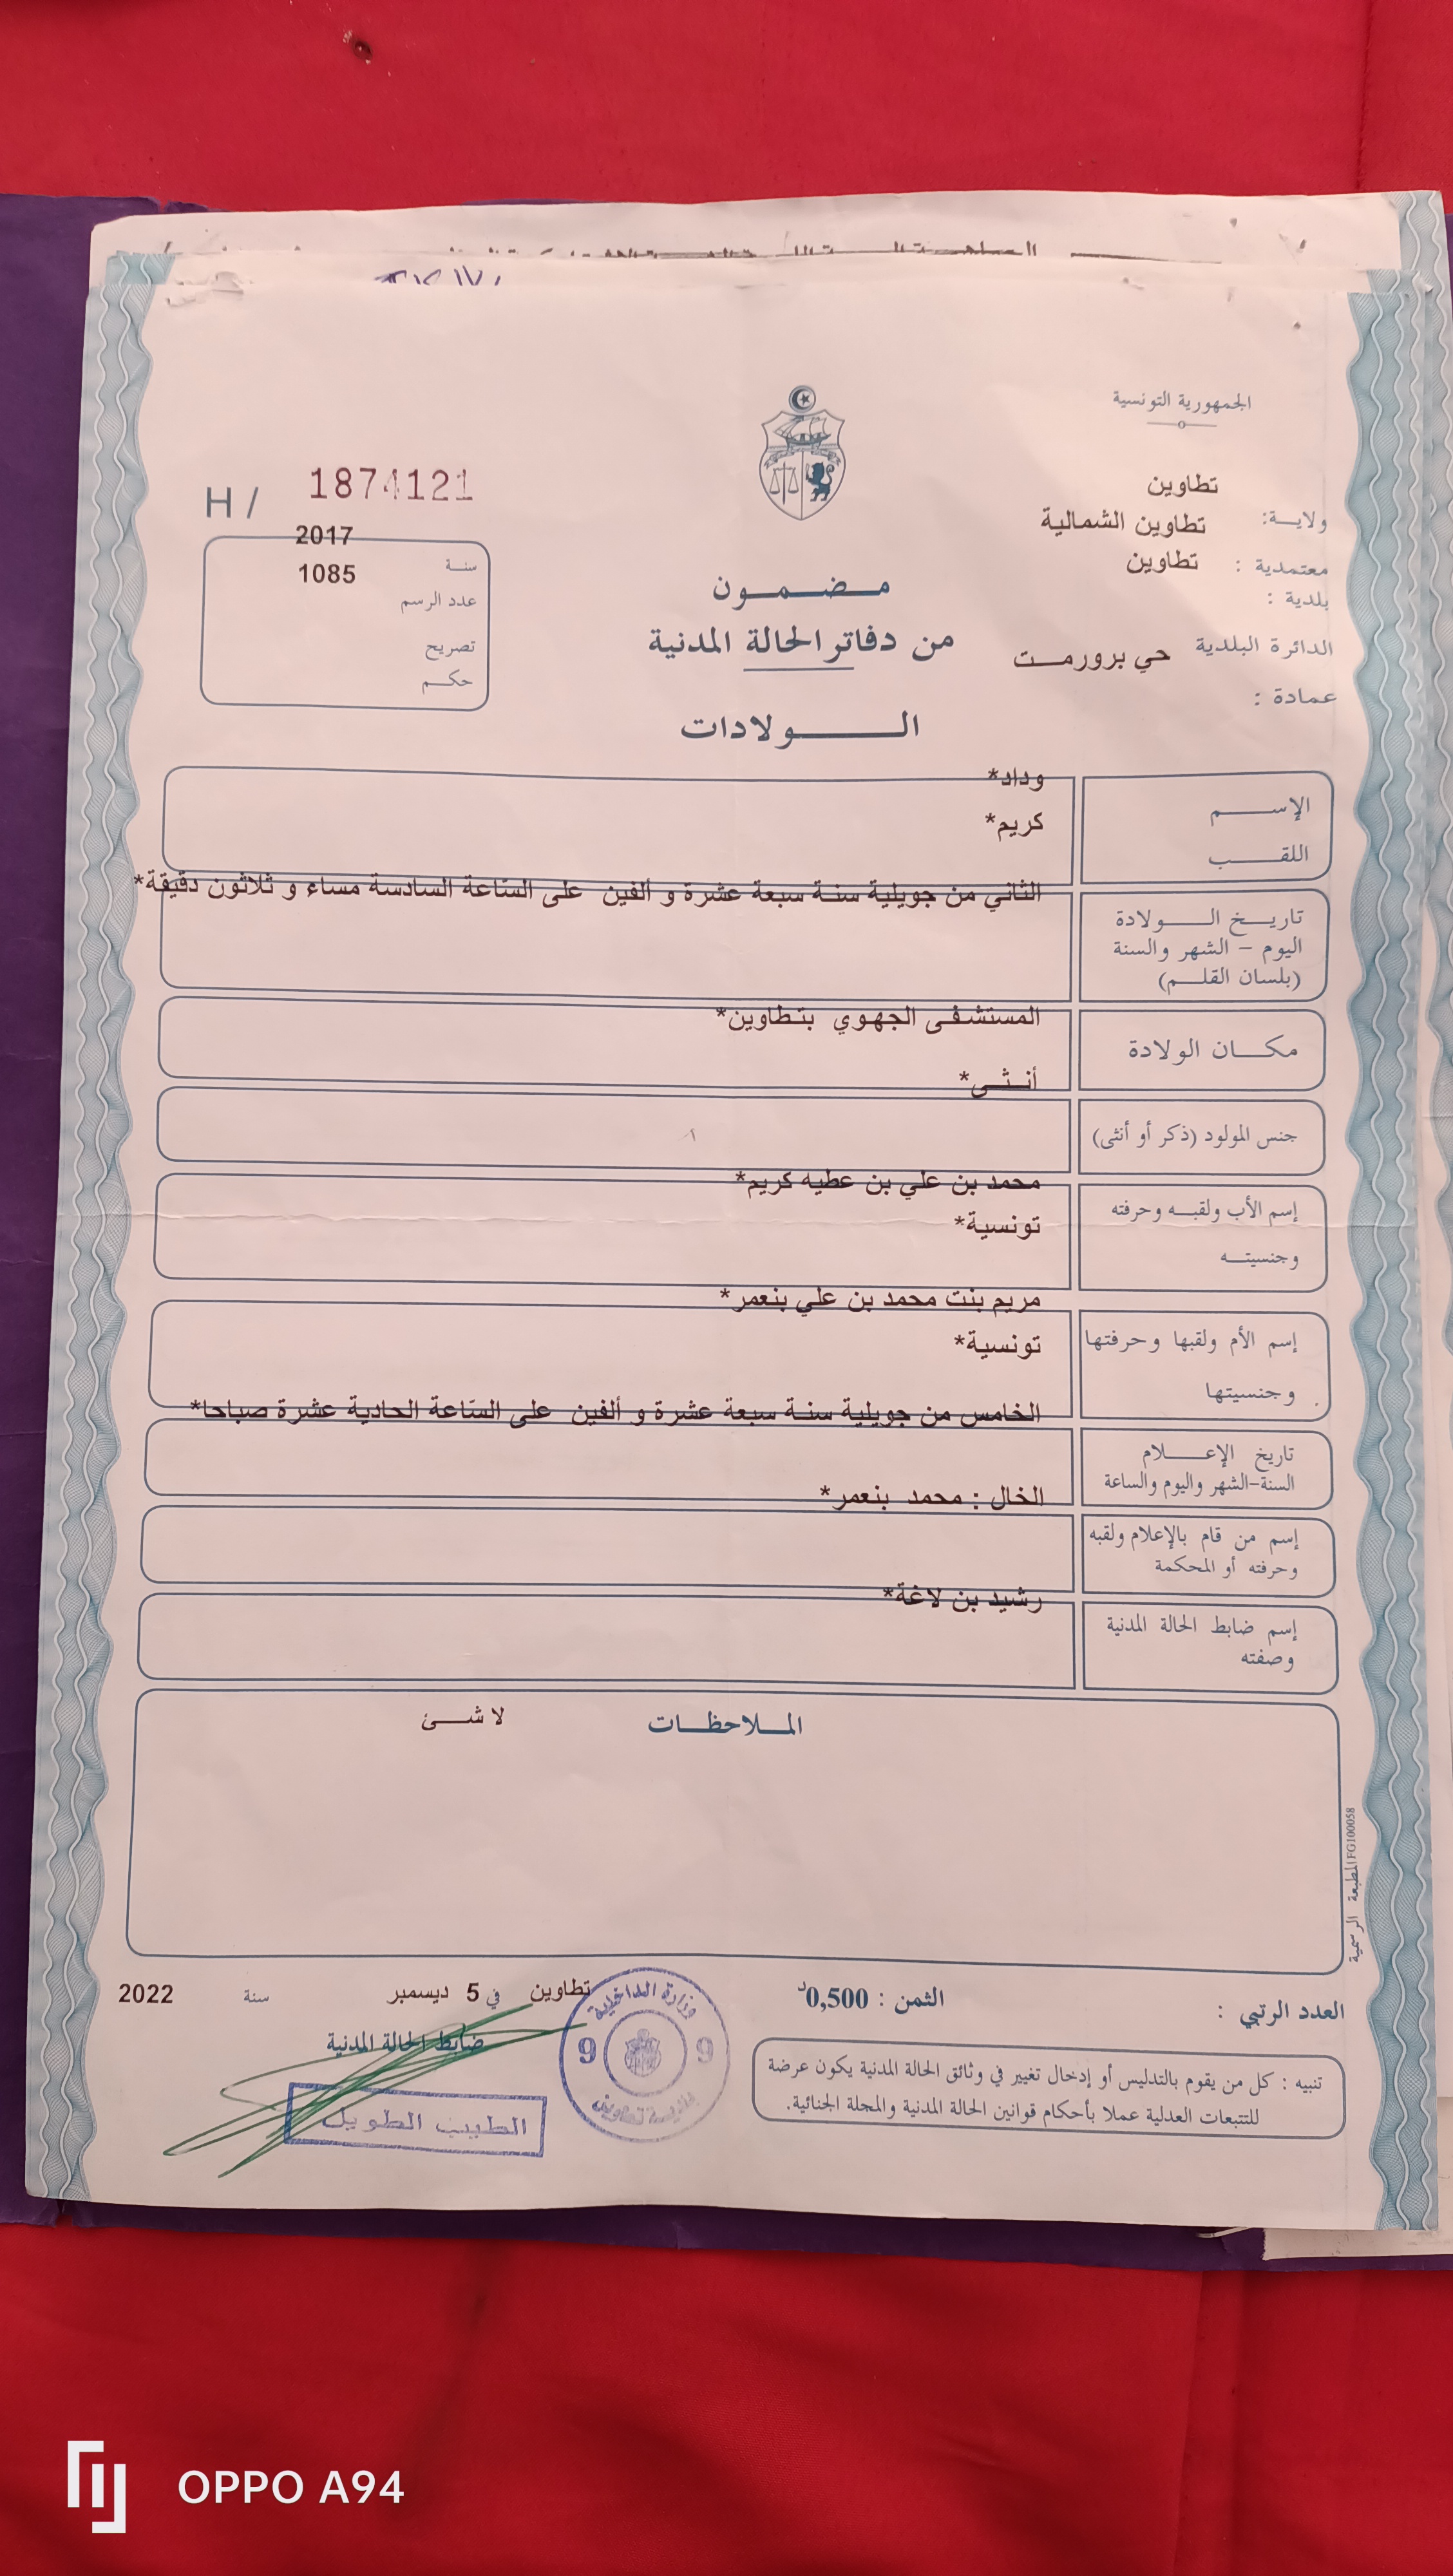 الجمهورية التونسية
تطاوين
ولايـــة:
تطاوين الشمالية
معتمدية :
تطاوين
بلدية :
الدائرة البلدية حي برورمـــت
عمادة :
H / 1874121
2017
سنــة
1085
عدد الرسم
تصريح
حكـــم
مـــضـــمـــون
من دفاتر الحالة المدنية
الـــــــولادات
وداد*
الإســــــم
كريم*
اللقــــــب
الثاني من جويلية سنـة سبعة عشرة و ألفين على السّاعة السادسة مساء و ثلاثون دقيقة*
تاريـــخ الـــــولادة
اليوم – الشهر والسنة
(بلسان القلـــم)
المستشـفـى الجهـوي بتـطاوين*
مكـــان الولادة
أنــثــى*
جنس المولود (ذكر أو أنثى)
محمد بن علي بن عطيه كريم*
إسم الأب ولقبــه وحرفته
تونسية*
وجنسيتــه
مريم بنت محمد بن علي بنعمر*
إسم الأم ولقبها وحرفتها
تونسية*
وجنسيتها
الخامس من جويلية سنـة سبعة عشرة و ألفين على السّاعة الحادية عشرة صباحا*
تاريخ الإعـــــلام
السنة-الشهر واليوم والساعة
الخال : محمد بنعمر*
إسم من قام بالإعلام ولقبه
وحرفته أو المحكمة
رشيد بن لاغة*
إسم ضابط الحالة المدنية
وصفته
المـــلاحظـــات
لا شـــئ
المطبعة الرسمية FG100058
العدد الرتبي :
الثمن : 0,500د
تطاوين في 5 ديسمبر سنة 2022
ضابط الحالة المدنية
الطيب الطويل
وزارة الداخلية
9 9
بلديـة تطاوين
تنبيه : كل من يقوم بالتدليس أو إدخال تغيير في وثائق الحالة المدنية يكون عرضة
للتتبعات العدلية عملا بأحكام قوانين الحالة المدنية والمجلة الجنائية.
OPPO A94